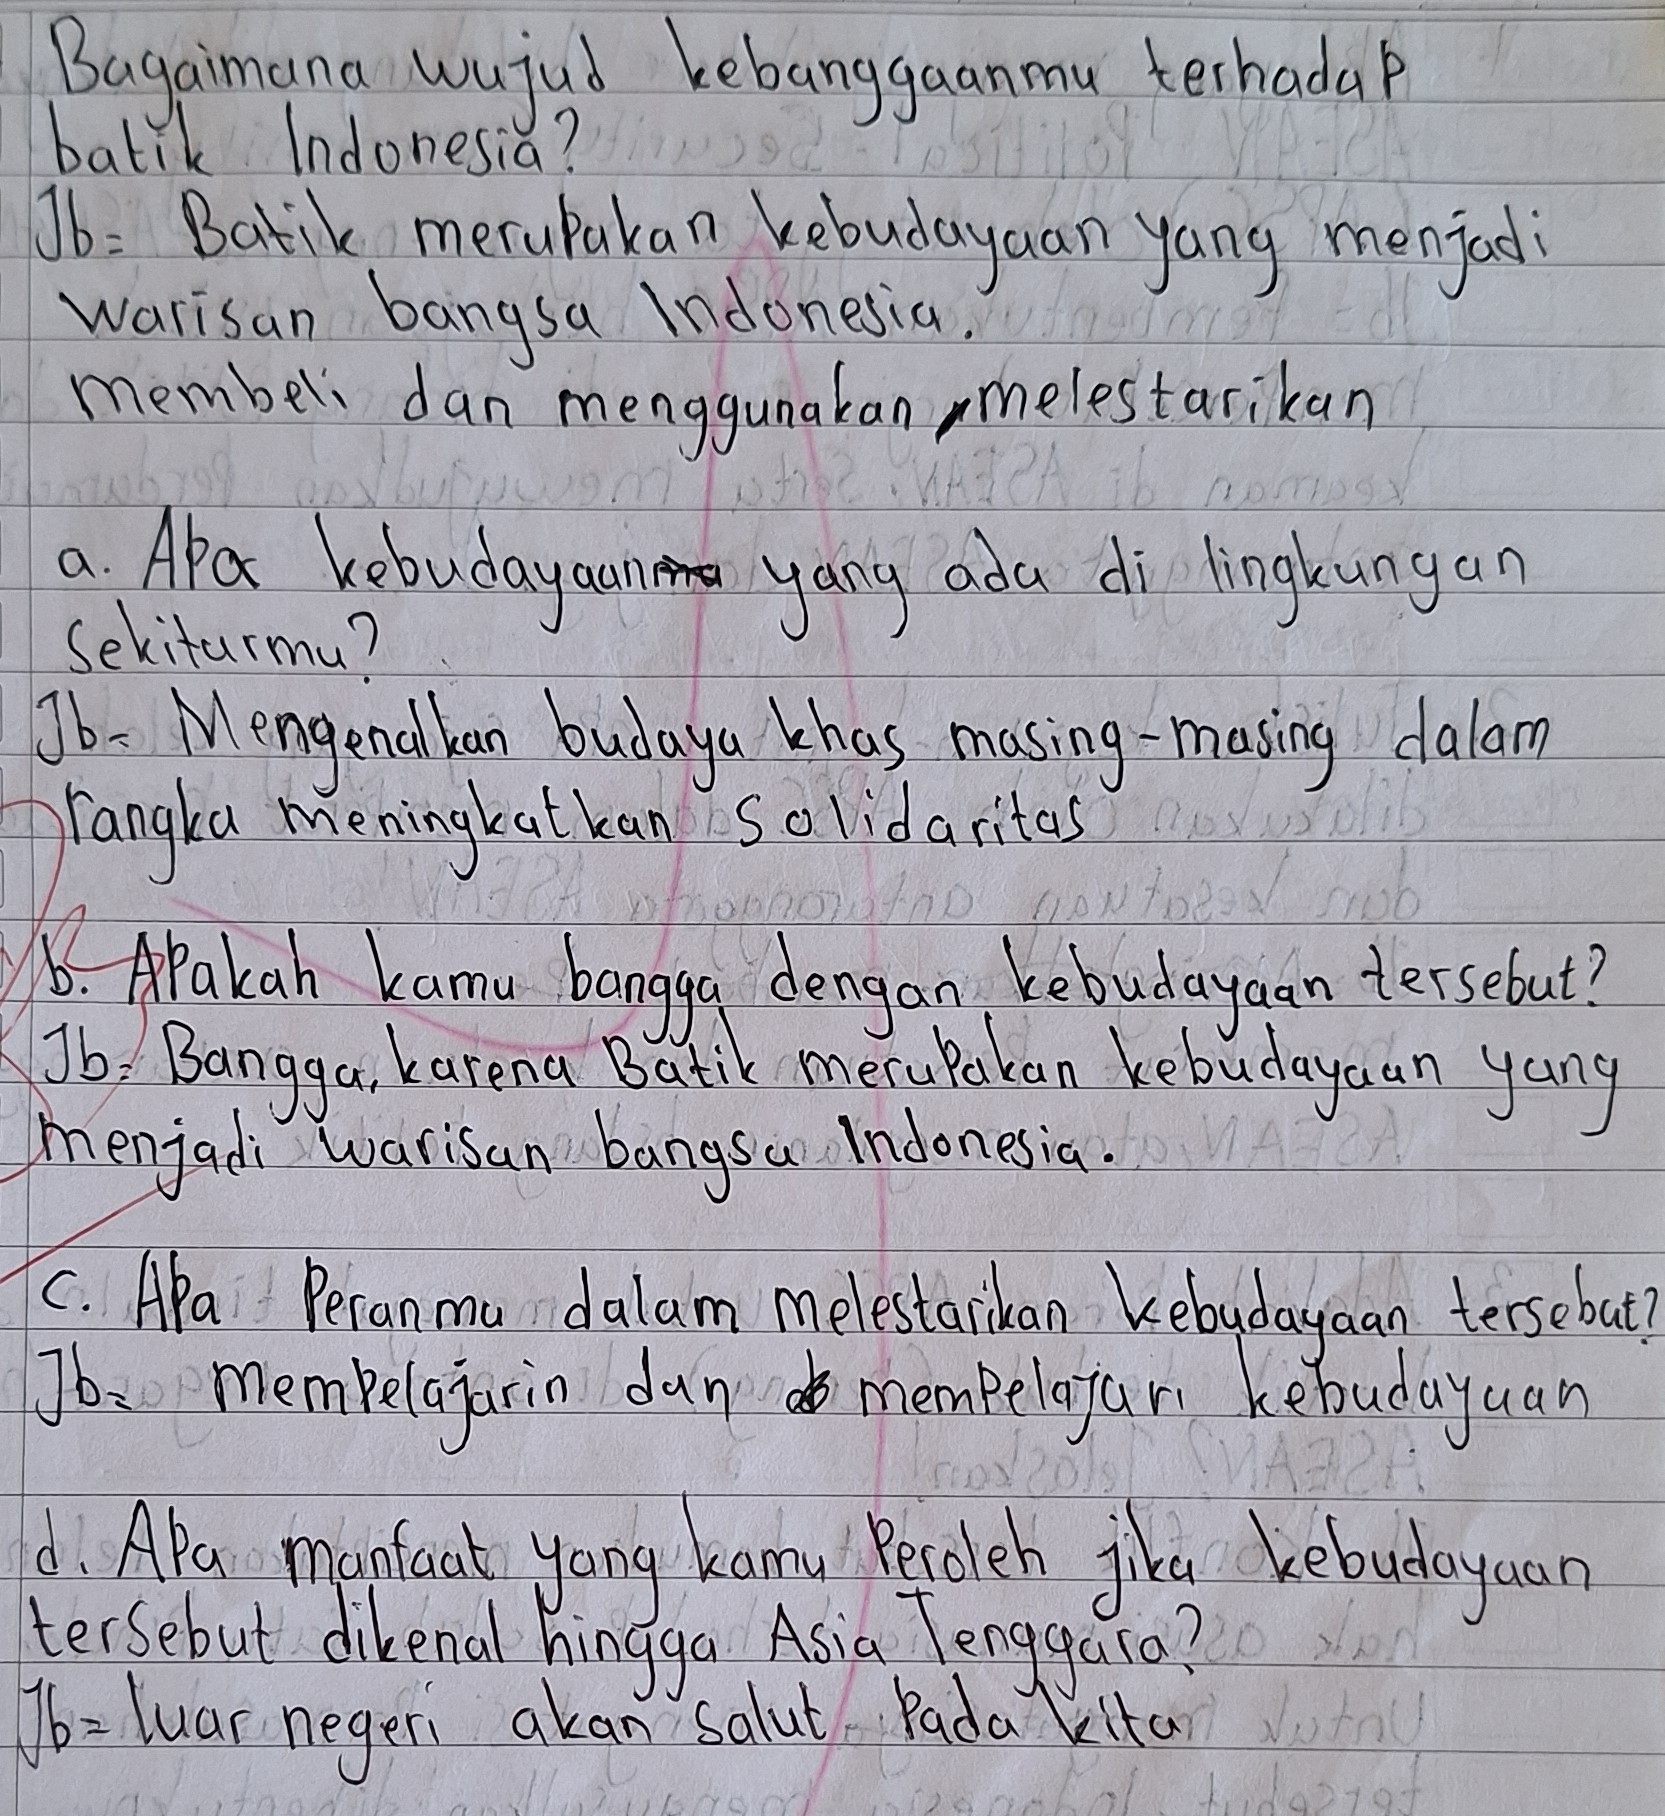 Bagaimana wujud kebanggaanmu terhadap
batik Indonesia?
Jb= Batik merupakan kebudayaan yang menjadi
warisan bangsa Indonesia.
membeli dan menggunakan, melestarikan
a. Apa kebudayaan yang ada di lingkungan
sekitarmu?
Jb= Mengenalkan budaya khas masing-masing dalam
rangka meningkatkan solidaritas
b. Apakah kamu bangga dengan kebudayaan tersebut?
Jb= Bangga, karena Batik merupakan kebudayaan yang
menjadi warisan bangsa Indonesia.
c. Apa Peranmu dalam melestarikan kebudayaan tersebut?
Jb= mempelajarin dan mempelajari kebudayaan
d. Apa manfaat yang kamu Peroleh jika kebudayaan
tersebut dikenal hingga Asia Tenggara?
Jb= luar negeri akan salut Pada kita